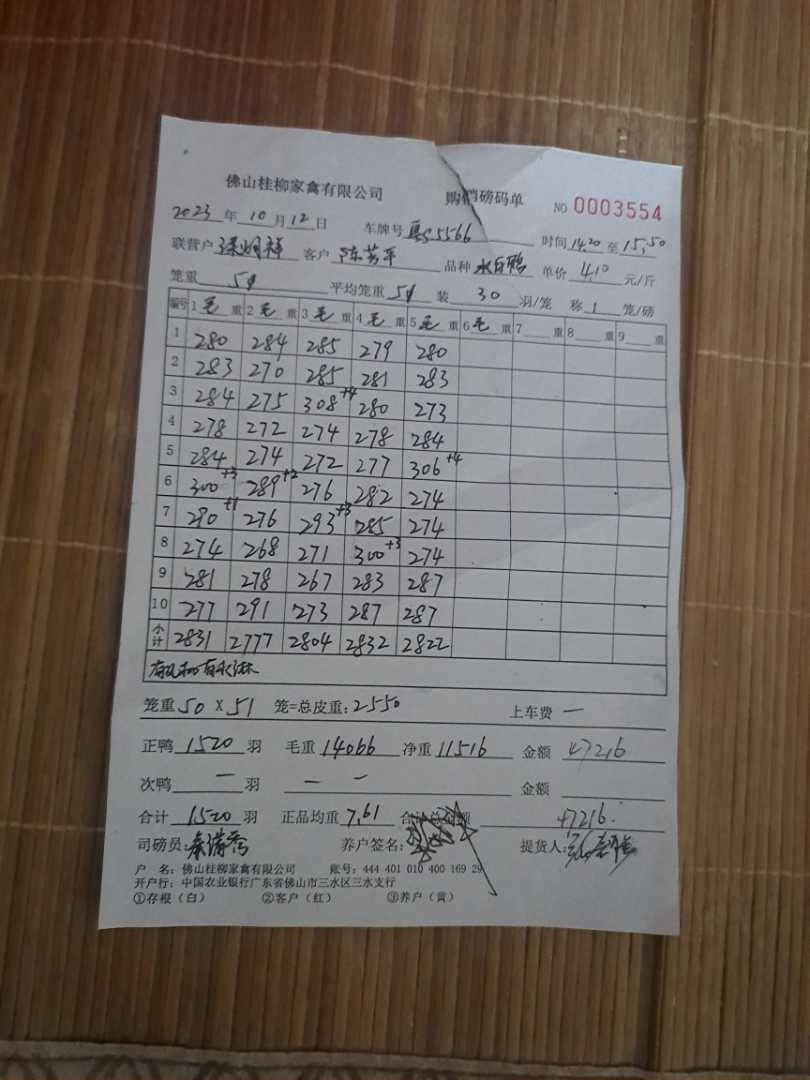 佛山桂柳家禽有限公司 购销磅码单 NO 0003554
2023年10月12日 车牌号 粤S5566 时间14.20至15.50
联营户 客户 陈芳平 品种 水白鸭 单价 4.10 元/斤
笼重 51 平均笼重 51 装 30 羽/笼 称 1 笼/磅
编号 1毛重 2毛重 3毛重 4毛重 5毛重 6毛重 7 重 8 重 9 重
1 280 284 285 279 280
2 283 270 285 281 283
3 284 275 308+4 280 273
4 278 272 274 278 284
5 284 274 272 277 306+4
6 300+3 289+2 276 282 274
7 290+1 276 293+3 285 274
8 274 268 271 300+3 274
9 281 278 267 283 287
10 277 291 273 287 287
小计 2831 2777 2804 2832 2822
笼重 50 X 51 笼=总皮重:2550 上车费 一
正鸭 1520 羽 毛重 14066 净重 11516 金额 47216
次鸭 一 羽 一 一 金额
合计 1520 羽 正品均重 7.61 合计总金额 47216.
司磅员: 养户签名: 提货人:
户 名:佛山桂柳家禽有限公司 账号:444 401 010 400 169 29
开户行:中国农业银行广东省佛山市三水区三水支行
①存根(白) ②客户(红) ③养户(黄)